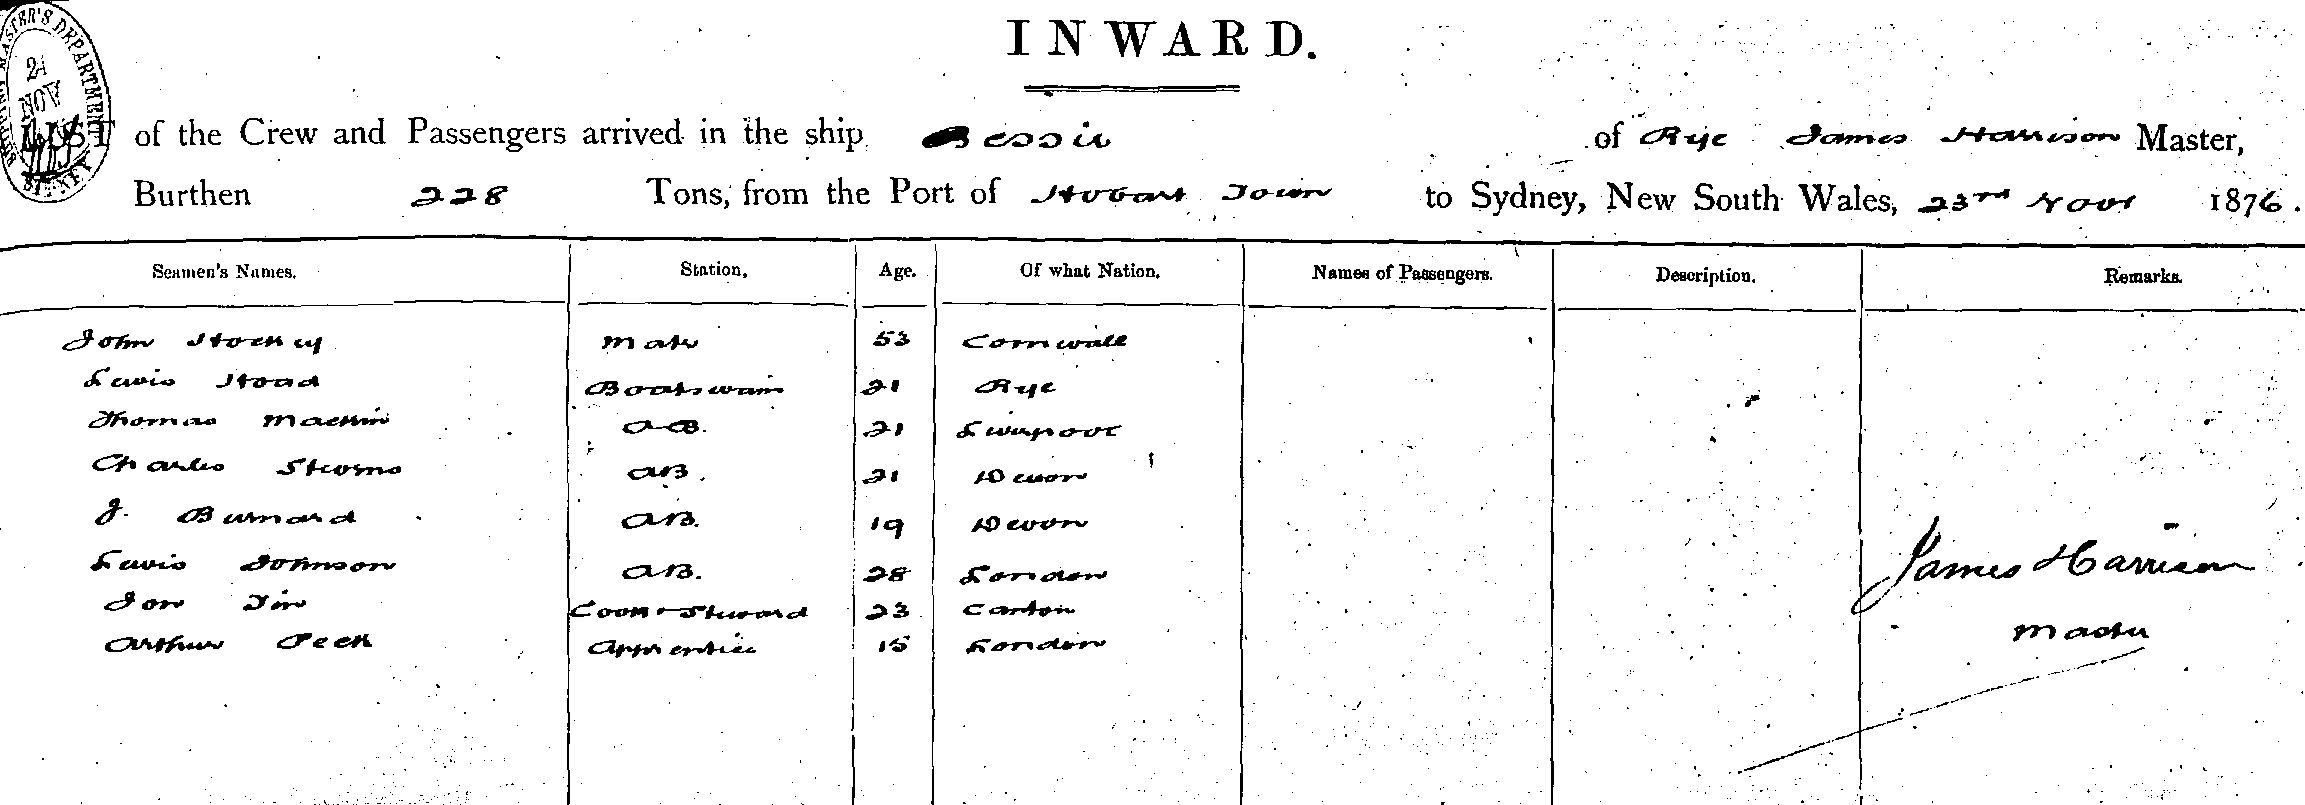 INWARD.
LIST of the Crew and Passengers arrived in the ship Bessie of Rye James Harrison Master,
Burthen 228 Tons, from the Port of Hobart Town to Sydney, New South Wales, 23rd Novr 1876.
Seamen's Names. Station. Age. Of what Nation. Names of Passengers. Description. Remarks.
John Mate 53 Cornwall
Lewis Hoad Boatswain 21 Rye
Thomas Mackin AB. 21 Liverpool
Charles AB. 21 Devon
J. Burnard AB. 19 Devon
Lewis Johnson AB. 28 London
Jon Tin Cook & Steward 23 Canton
Arthur Peek Apprentice 15 London
James Harrison
Master